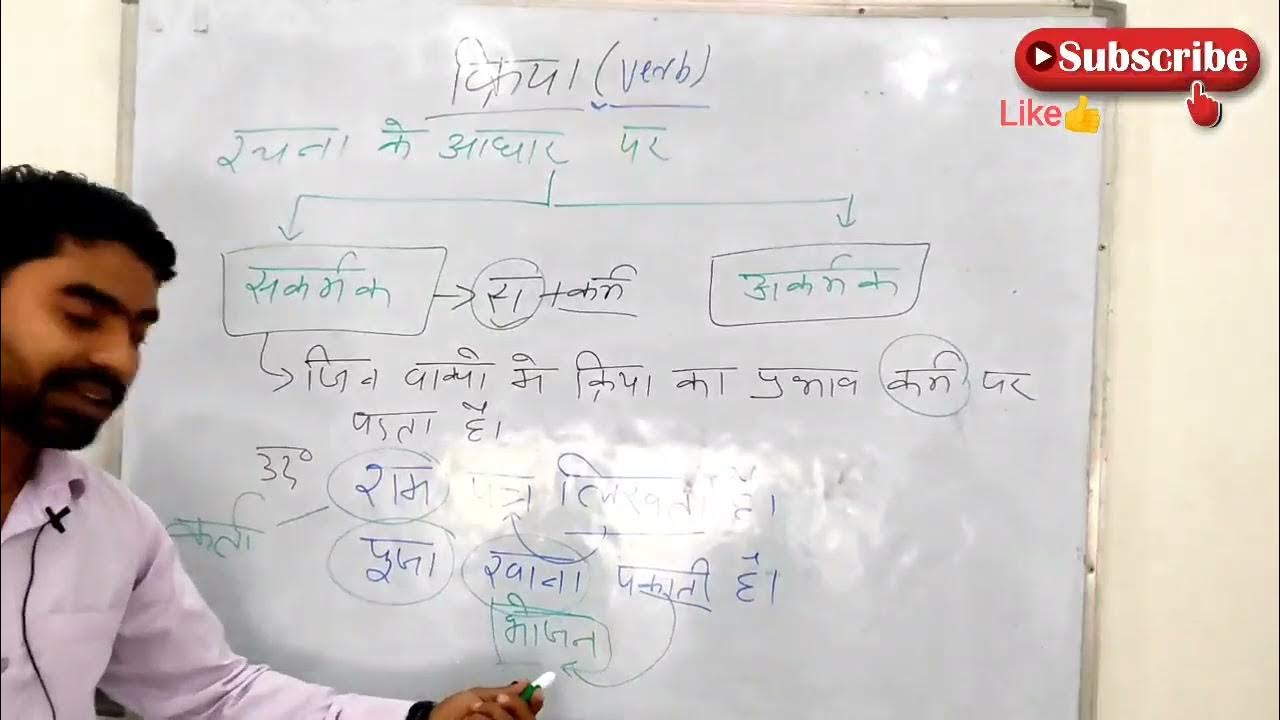 Subscribe
Like
क्रिया (Verb)
रचना के आधार पर
सकर्मक → स + कर्म अकर्मक
→ जिन वाक्यो मे क्रिया का प्रभाव कर्म पर
पडता है।
उद० राम पत्र लिखता है।
कर्ता
पूजा खाना पकाती है।
भोजन